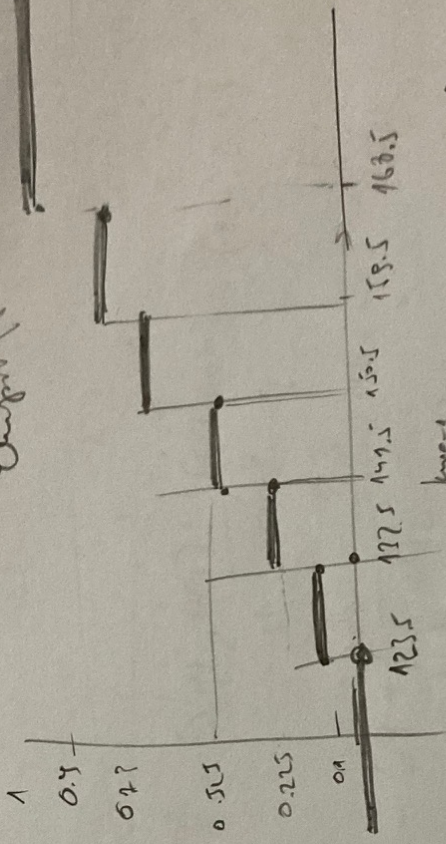 1
0.9
0.525
0.225
0.1
123.5
132.5
141.5
150.5
159.5
168.5